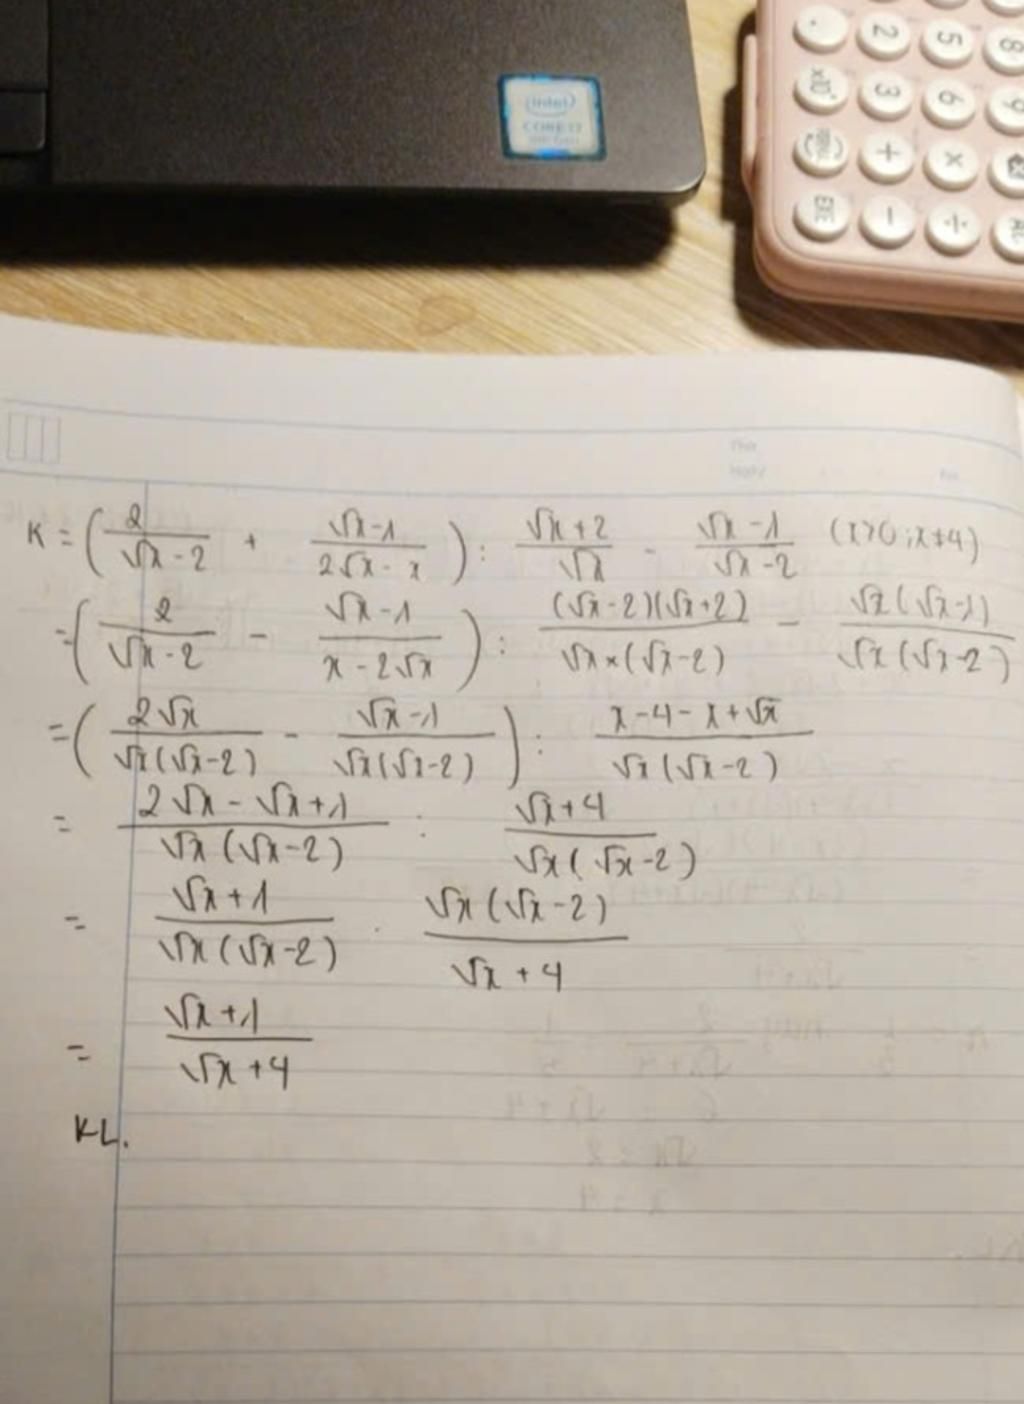 intel
CORE i7
. 2 5 8
x10ˣ 3 6 9
+ ×
EXE − ÷ AC
K = (2/(√x - 2) + (√x - 1)/(2√x - x)) : (√x + 2)/√x - (√x - 1)/(√x - 2) (x>0; x≠4)
= (2/(√x - 2) - (√x - 1)/(x - 2√x)) : ((√x - 2)(√x + 2))/(√x × (√x - 2)) - (√x(√x - 1))/(√x(√x - 2))
= (2√x/(√x(√x - 2)) - (√x - 1)/(√x(√x - 2))) : (x - 4 - x + √x)/(√x(√x - 2))
= (2√x - √x + 1)/(√x(√x - 2)) : (√x + 4)/(√x(√x - 2))
= (√x + 1)/(√x(√x - 2)) . (√x(√x - 2))/(√x + 4)
= (√x + 1)/(√x + 4)
KL.